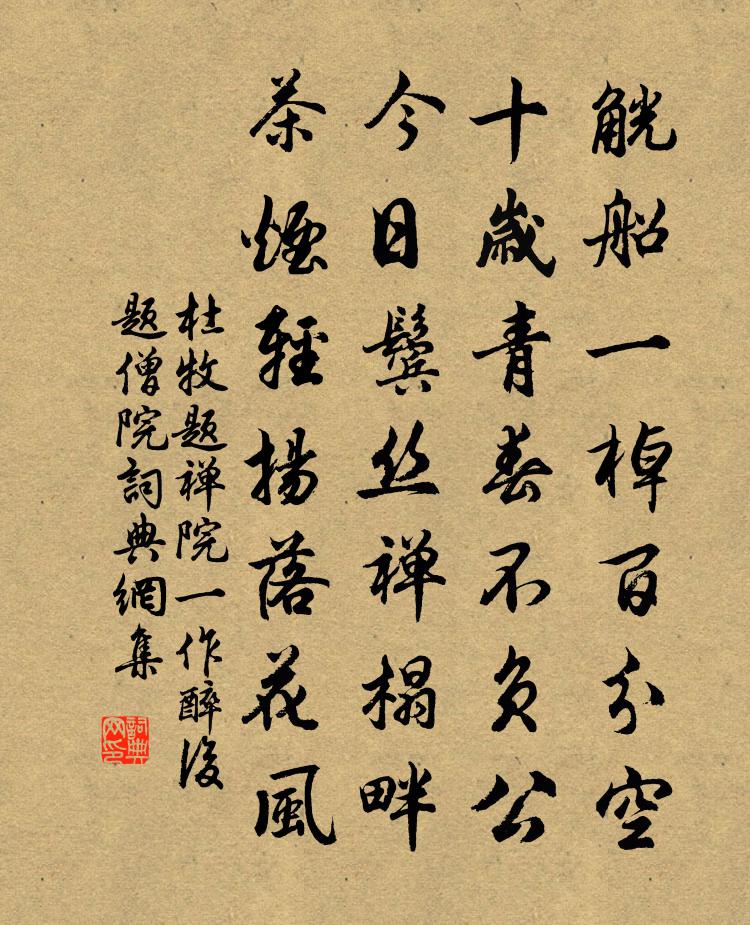 觥船一棹百分空
十歲青春不負公
今日鬢丝禅榻畔
茶煙輕揚落花風
杜牧题禅院一作醉後
题僧院詞典網集
詞典
网印